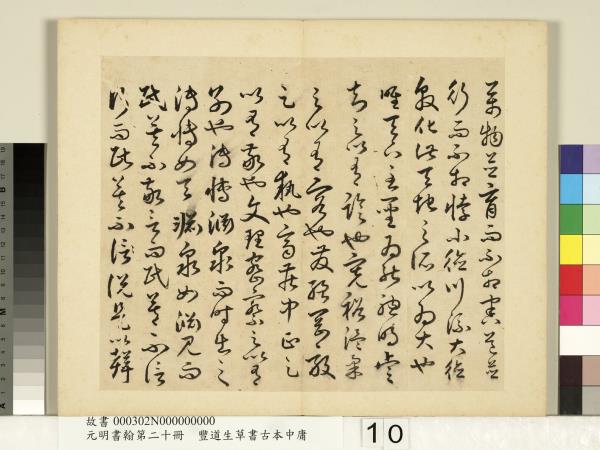 萬物並育而不相害道並
行而不相悖小德川流大德
敦化此天地之所以為大也
唯天下至聖為能聰明睿
知足以有臨也寬裕溫柔
足以有容也發強剛毅
足以有執也齊莊中正足
以有敬也文理密察足以有
別也溥博淵泉而時出之
溥博如天淵泉如淵見而
民莫不敬言而民莫不信
行而民莫不說是以聲
故書 000302N000000000
元明書翰第二十冊 豐道生草書古本中庸
10